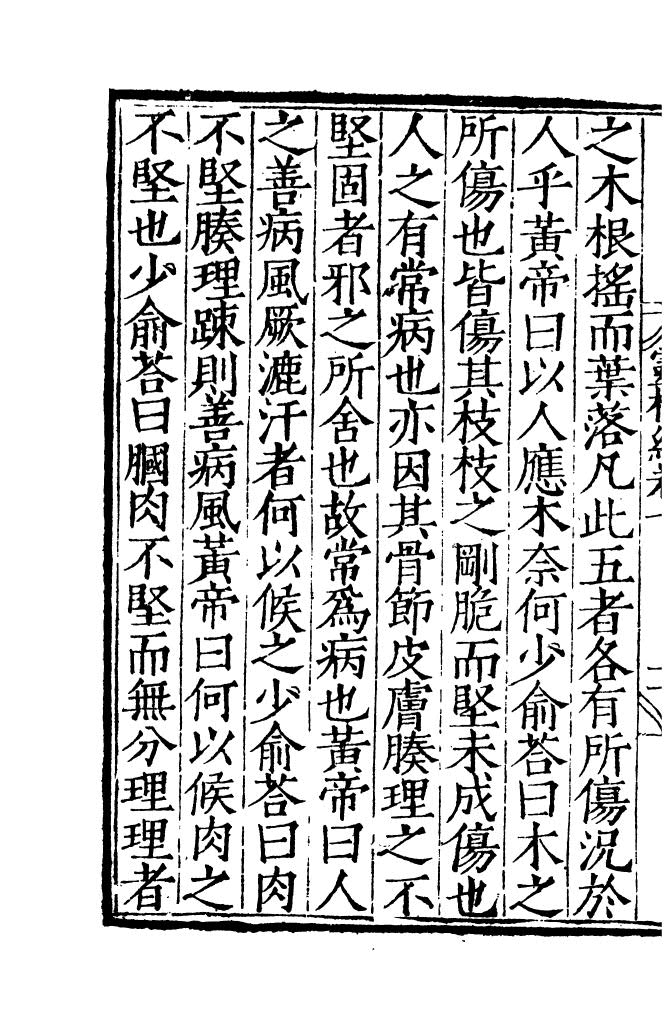 之木根搖而葉落凡此五者各有所傷況於
人乎黃帝曰以人應木奈何少俞荅曰木之
所傷也皆傷其枝枝之剛脆而堅未成傷也
人之有常病也亦因其骨節皮膚腠理之不
堅固者邪之所舍也故常爲病也黃帝曰人
之善病風厥漉汗者何以候之少俞荅曰肉
不堅腠理踈則善病風黃帝曰何以候肉之
不堅也少俞荅曰膕肉不堅而無分理理者